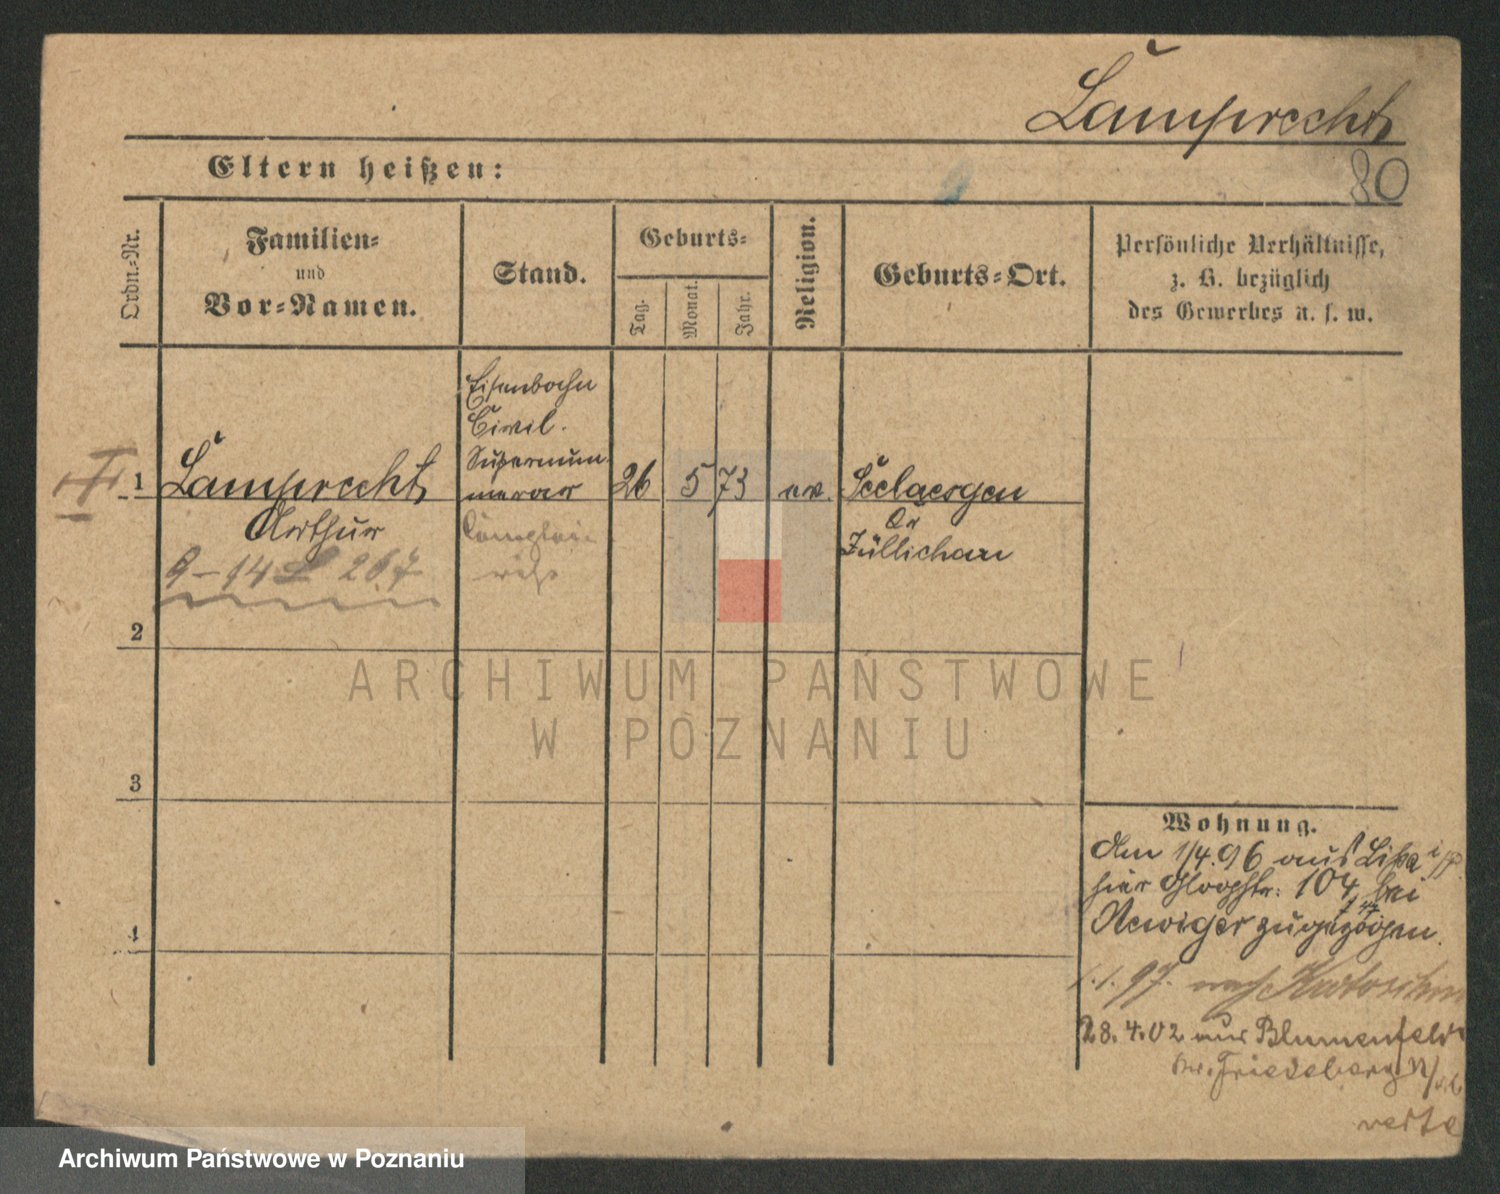 Lamprecht
80
Eltern heißen:
Ordn.-Nr.
Familien-
und
Vor-Namen.
Stand.
Geburts-
Tag.
Monat.
Jahr.
Religion.
Geburts-Ort.
Persönliche Verhältnisse,
z. B. bezüglich
des Gewerbes u. s. w.
Eisenbahn
Civil.
Supernum
1 Lamprecht merar 26 5 73 ev. Seelaesgen
Arthur Kr
Züllichau
9-14 L 267
2
3
4
Wohnung.
Am 1/4. 96 aus Lissa i/P.
hier Glogstr: 104 bei
Aewiger zugezogen.
1.1.97. nach Krotoschin
28.4.02 aus Blumenfelde
Kr. Friedeberg N/
ARCHIWUM PAŃSTWOWE
W POZNANIU
Archiwum Państwowe w Poznaniu